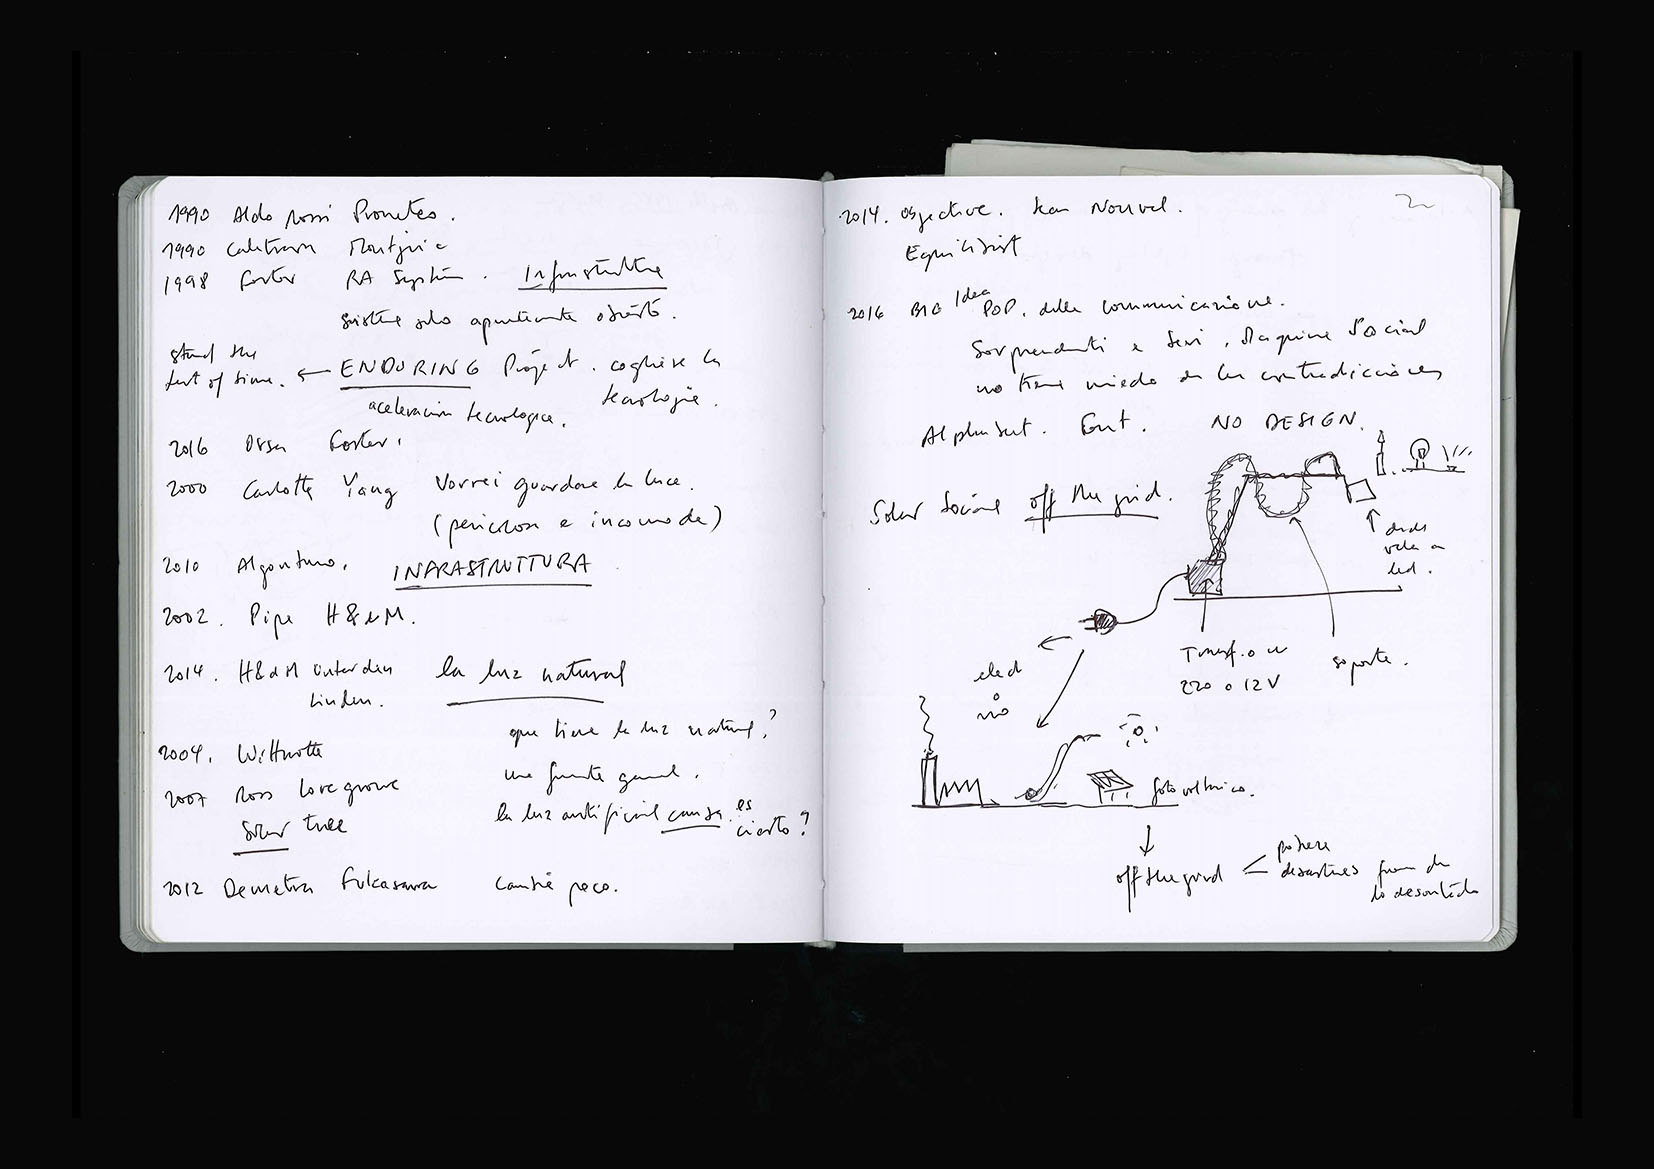 1990 Aldo Rossi Prometeo.
1990 Calatrava Montjuic
1998 Foster RA System. Infrastrutture
sisteme solo apuntamente obietto.
stand the
test of time. ← ENDURING Project. cogliere la
tecnologie.
aceleracion tecnologica.
2016 Ossa Foster.
2000 Carlotta Yang Vorrei guardare la luce.
(pericolosa e incomoda)
2010 Algoritmo. INFRASTRUTTURA
2002. Pipe H&deM.
2014. H&dM Unter den la luz natural
Linden.
que tiene la luz natural?
2004. Wilmotte
una fuente
2007 Ross Lovegrove
la luz artificial cansa. es
Solar tree cierto?
2012 Demetra Fukasawa poco.
2014. Objective. Jean Nouvel.
Equilibrist
2016 BIG Idea POP. della communicazione.
Sorprendenti e Seri. Maquina Social
no tiene miedo de las contradicciones
Alphabet. Font. NO DESIGN.
Solar Social off the grid.
donde
vela a
led.
Transf. o
220 o 12V
soporte.
elect
o
no
fotovoltaico.
off the grid < potere
desastres fuera de
lo